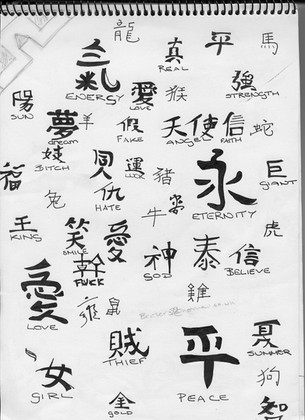 龍
真
REAL
平
馬
氣
ENERGY
愛
LOVE
猴
強
STRENGTH
陽
SUN
夢
dream
羊
假
FAKE
天使
ANGEL
信
FAITH
蛇
BITCH
福
兔
仇
HATE
運
豬
永
ETERNITY
巨
GIANT
王
KING
笑
SMILE
愛
牛
虎
幹
FUCK
神
GOD
泰
信
BELIEVE
愛
LOVE
鼠
雞
賊
THIEF
平
PEACE
夏
SUMMER
狗
女
GIRL
金
GOLD
智